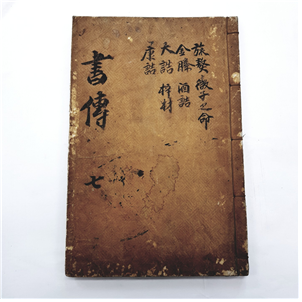 書傳 七
旅獒 微子之命
金縢 酒誥
大誥 梓材
康誥